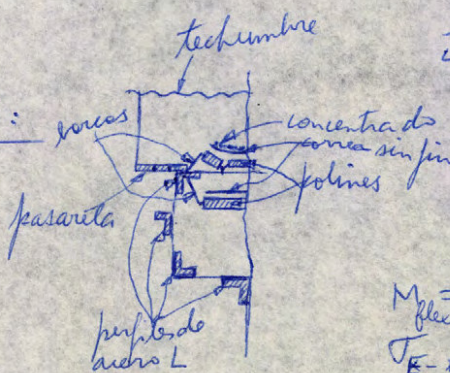 techumbre
:
concentrado
correa sin fin
polines
pasarela
perfiles de
acero L
M flex =